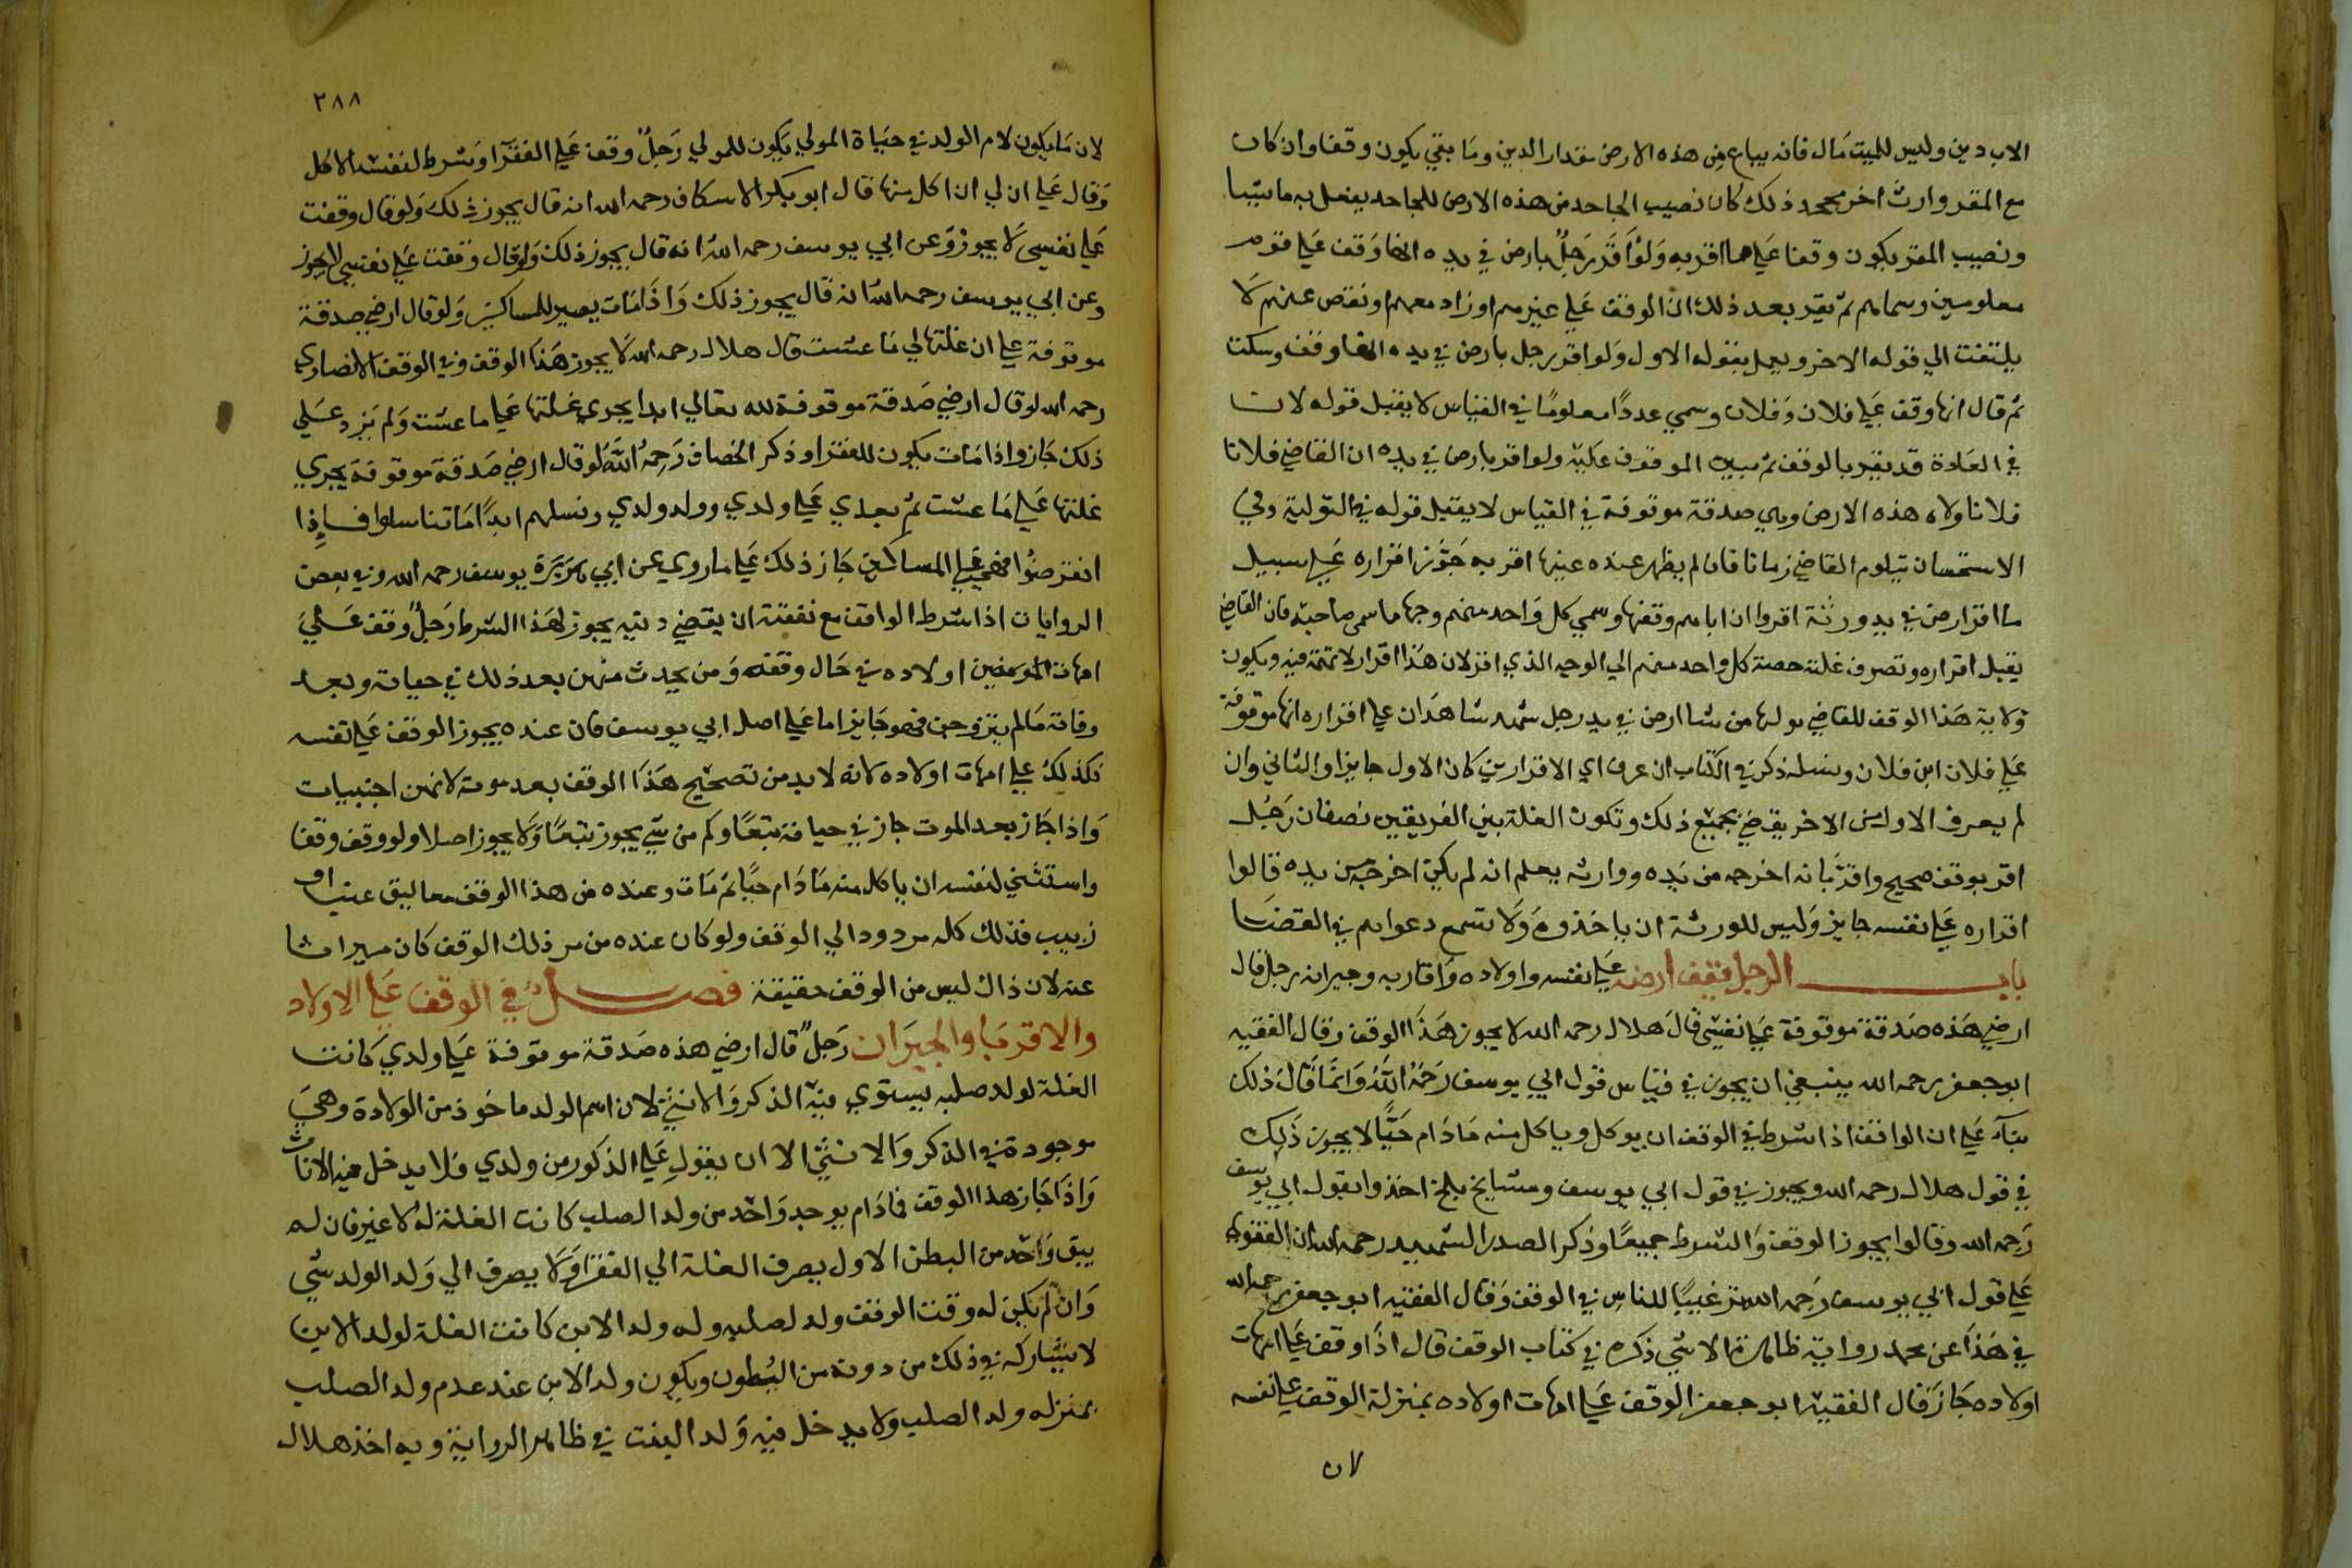 الاب دين وليس للميت مال فانه يباع من هذه الارض بمقدار الدين وما بقي يكون وقفا وان كان
مع المقر وارث اخر يجحد ذلك كان نصيب الجاحد من هذه الارض للجاحد يفعل به ما يشا
ونصيب المقر يكون وقفا على ما اقر به ولو اقر رجل بارض في يده انها وقف على قوم
معلومين وسماهم ثم يقر بعد ذلك ان الوقف على غيرهم او زاد معهم او نقص عنهم لا
يلتفت الي قوله الاخر ويعمل بقوله الاول ولو اقر رجل بارض في يده انها وقف وسكت
ثم قال انها وقف علي فلان وفلان وسمي عددا معلوما في القياس لا يقبل قوله لان
في العادة قد يقر بالوقف ثم يبين الموقوف عليه ولو اقر بارض في يده ان القاضي فلانا
فلانا ولاه هذه الارض وهي صدقة موقوفة في القياس لا يقبل قوله في التولية وفي
الاستحسان يتلوم القاضي زمانا فان لم يظهر عنده غيرها اقر به جوز اقراره علي سبيل
ما اقر ارض في يد ورثة اقروا ان اباهم وقفها وسمي كل واحد منهم وجها ما سمي صاحبه فان القاضي
يقبل اقراره وتصرف غلة حصة كل واحد منهم الي الوجه الذي اقر لان هذا اقرار لا تهمة فيه ويكون
ولاية هذا الوقف للقاضي يولها من شا ارض في يد رجل شهد شاهدان علي اقراره انها موقوفة
علي فلان ابن فلان ونسله ذكر في الكتاب ان عرف اي الاقرارين كان الاول جايزا والثاني وان
لم يعرف الاول من الاخر يقضي بجميع ذلك وتكون الغلة بين الفريقين نصفان رجل
اقر بوقف صحيح واقر بانه اخرجه من يده ووارثه يعلم انه لم يكن اخرجه من يده قالوا
اقراره علي نفسه جايز وليس للورثة ان ياخذوه ولا تسمع دعواهم في القضا
باب الرجل يقف ارضه علي نفسه واولاده واقاربه وجيرانه رجل قال
ارضي هذه صدقة موقوفة علي نفسي قال هلال رحمه الله لا يجوز هذا الوقف وقال الفقيه
ابو جعفر رحمه الله ينبغي ان يجوز في قياس قول ابي يوسف رحمه الله وانما قال ذلك
بناء علي ان الواقف اذا شرط في الوقف ان يوكل وياكل منه مادام حيا لا يجوز ذلك
في قول هلال رحمه الله ويجوز في قول ابي يوسف ومشايخ بلخ اخذوا بقول ابي يوسف
رحمه الله وقالوا يجوز الوقف والشرط جميعا وذكر الصدر الشهيد رحمه الله ان الفتوي
علي قول ابي يوسف رحمه الله ترغيبا للناس في الوقف وقال الفقيه ابو جعفر رحمه الله
في هذا عن محمد رواية ظاهرة الا شي ذكره في كتاب الوقف قال اذا وقف علي امهات
اولاده جاز قال الفقيه ابو جعفر الوقف علي امهات اولاده بمنزلة الوقف علي نفسه
لان
٢٨٨
لان ما يكون لام الولد في حياة المولي يكون للمولي رجل وقف علي الفقرا وشرط لنفسه الاكل
وقال علي ان لي ان اكل منها قال ابو بكر الاسكاف رحمه الله انه قال يجوز ذلك ولو قال وقفت
علي نفسي لا يجوز وعن ابي يوسف رحمه الله انه قال يجوز ذلك ولو قال وقفت علي نفسي لا يجوز
وعن ابي يوسف رحمه الله انه قال يجوز ذلك واذا مات يصير للمساكين ولو قال ارضي صدقة
موقوفة علي ان غلتها لي ما عشت قال هلال رحمه الله لا يجوز هذا الوقف وفي الوقف الانصاري
رحمه الله لو قال ارضي صدقة موقوفة لله تعالي ابدا يجري غلتها علي ما عشت ولم يزد علي
ذلك جاز واذا مات يكون للفقرا وذكر الخصاف رحمه الله لو قال ارضي صدقة موقوفة يجري
غلتها علي ما عشت ثم بعدي علي ولدي وولد ولدي ونسلهم ابدا ما تناسلوا فاذا
انقرضوا فهي علي المساكين جاز ذلك علي ما روي عن ابي هريرة يوسف رحمه الله وفي بعض
الروايات اذا شرط الواقف مع نفقته ان يقضي دينه يجوز لهذا الشرط رجل وقف علي
امهات المومنين اولاده في حال وقفه ومن يحدث منهن بعد ذلك في حياته وبعد
وفاته ما لم يتزوجن فهو جايز اما علي اصل ابي يوسف فان عنده يجوز الوقف علي نفسه
فكذلك علي امهات اولاده لانه لا بد من تصحيح هذا الوقف بعد موته لانهن اجنبيات
واذا جاز بعد الموت جاز في حياته تبعا وكم من شي يجوز تبعا ولا يجوز اصلا ولو وقف وقفا
واستثني لنفسه ان ياكل منه مادام حيا ثم مات وعنده من هذا الوقف معاليق عنب او
زبيب فذلك كله مردود الي الوقف ولو كان عنده من مر ذلك الوقف كان ميراثا
عنه لان ذاك ليس من الوقف حقيقة فصل في الوقف علي الاولاد
والاقربا والجيران رجل قال ارضي هذه صدقة موقوفة علي ولدي كانت
الغلة لولد صلبه يستوي فيه الذكر والانثي لان اسم الولد ماخوذ من الولادة وهي
موجودة في الذكر والانثي الا ان يقول علي الذكور من ولدي فلا يدخل فيه الاناث
واذا جاز هذا الوقف فما دام يوجد واحد من ولد الصلب كانت الغلة له لا غير فان لم
يبق واحد من البطن الاول يصرف الغلة الي الفقرا ولا يصرف الي ولد الولد شي
وان لم يكن له وقت الوقف ولد لصلبه وله ولد الابن كانت الغلة لولد الابن
لا يشاركه في ذلك من دونه من البطون ويكون ولد الابن عند عدم ولد الصلب
بمنزله ولد الصلب ولا يدخل فيه ولد البنت في ظاهر الرواية وبه اخذ هلال